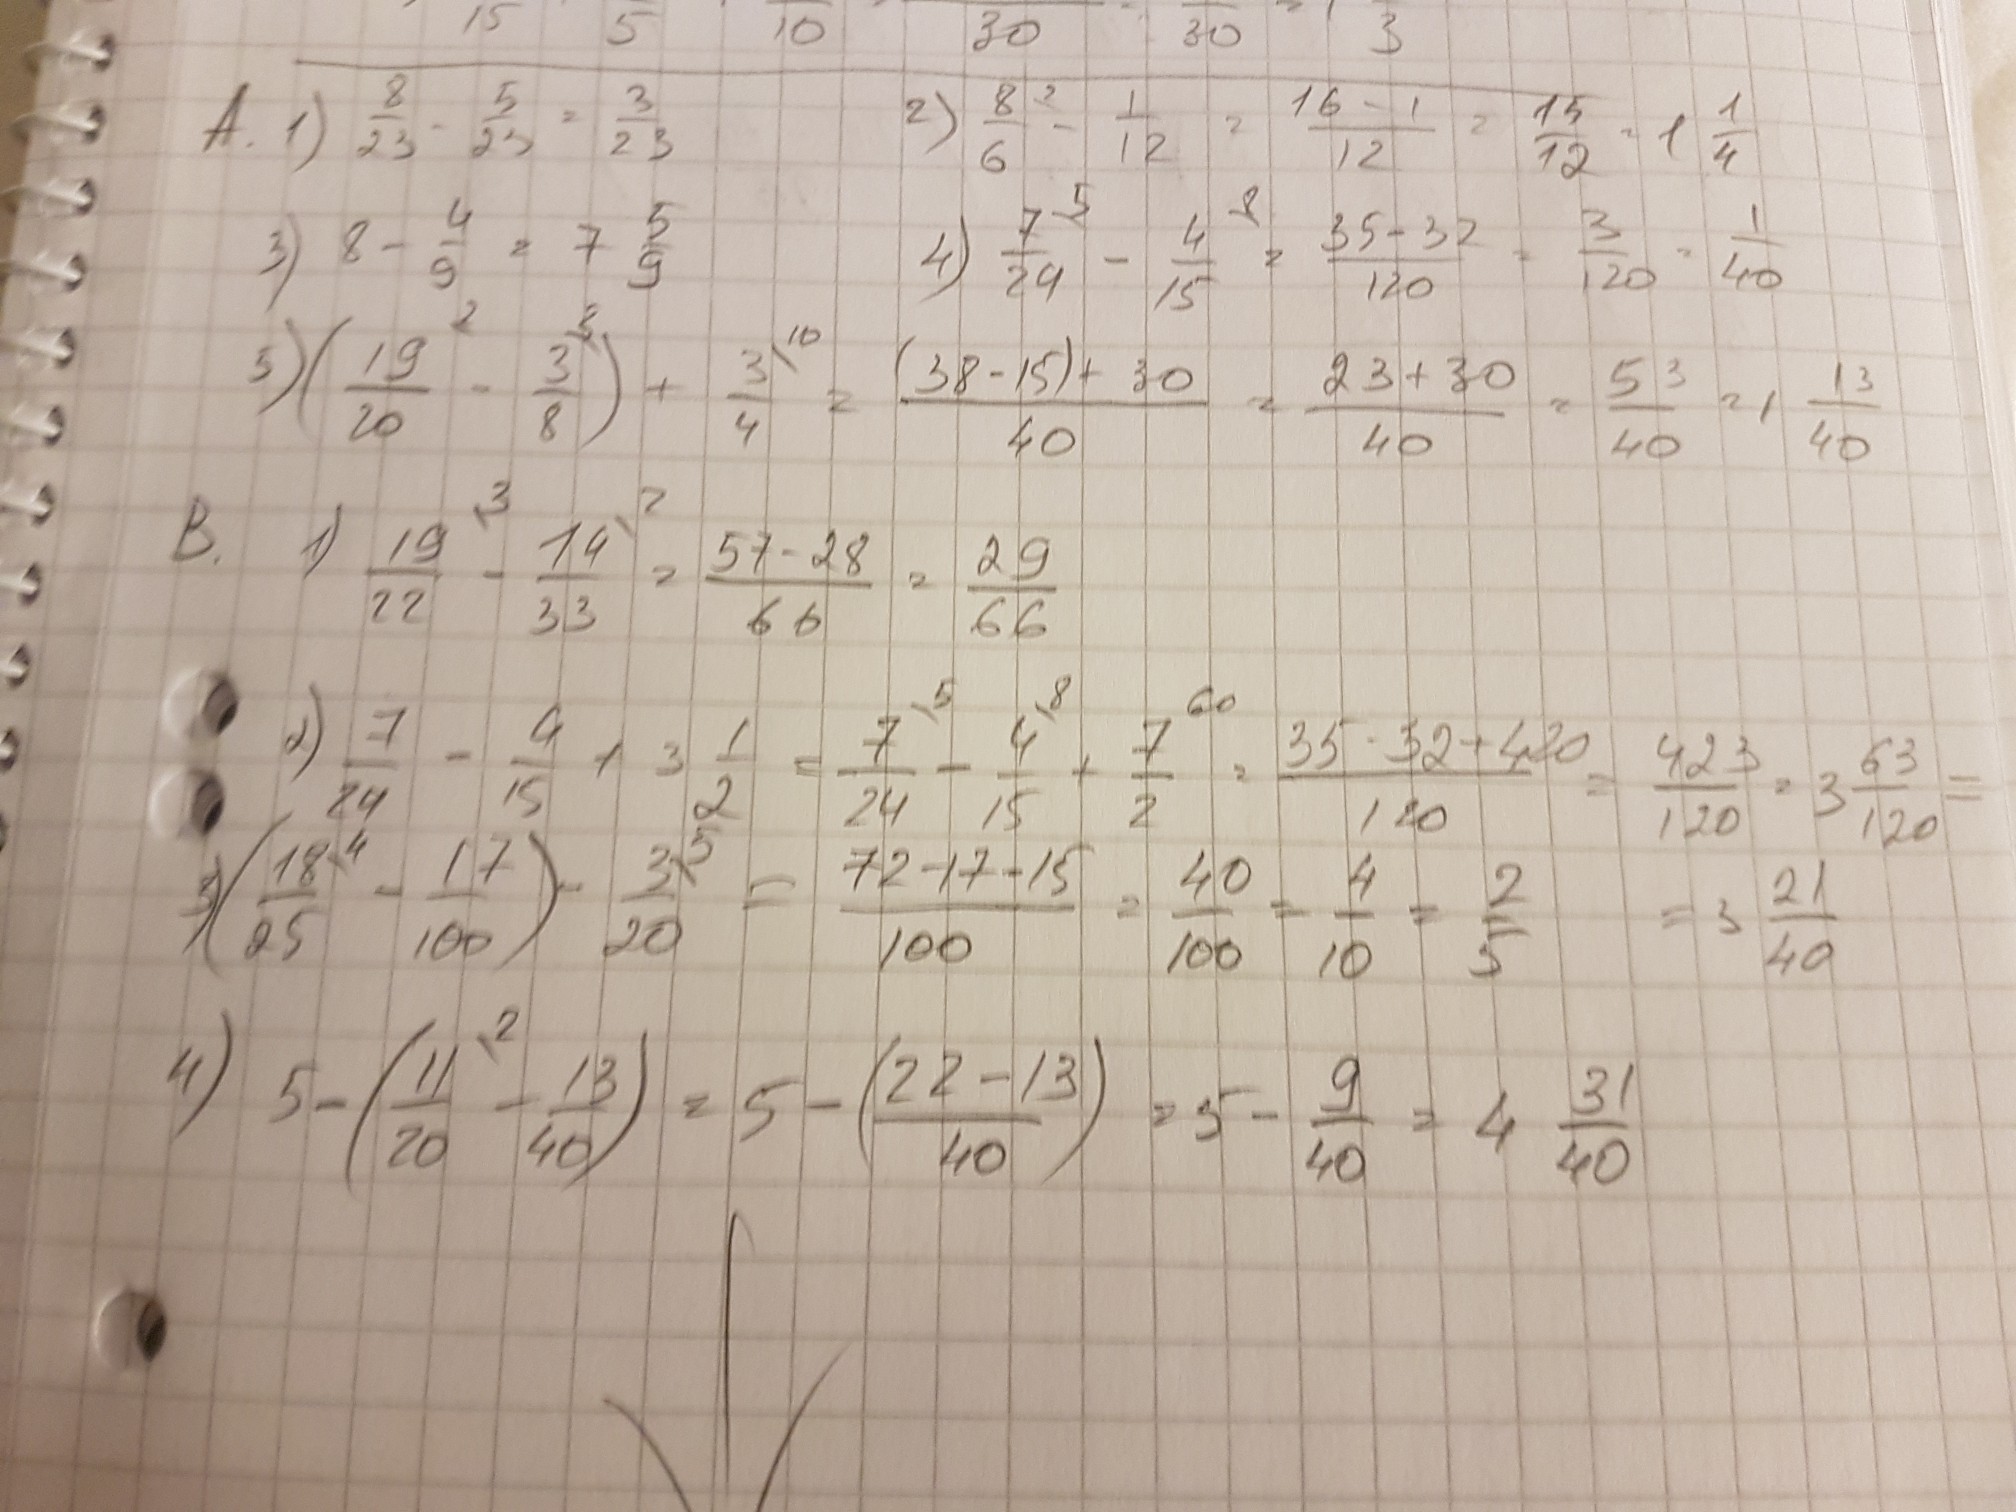 15 5 10 30 30 = 1 3
A. 1) 8/23 - 5/23 = 3/23 2) 8/6 \2 - 1/12 = (16-1)/12 = 15/12 = 1 1/4
3) 8 - 4/9 = 7 5/9 4) 7/24 \5 - 4/15 \8 = (35-32)/120 = 3/120 = 1/40
5) (19/20 \2 - 3/8 \5) + 3/4 \10 = ((38-15)+30)/40 = (23+30)/40 = 53/40 = 1 13/40
B. 1) 19/22 \3 - 14/33 \2 = (57-28)/66 = 29/66
2) 7/24 - 4/15 + 3 1/2 = 7/24 \5 - 4/15 \8 + 7/2 60 = (35-32+420)/120 = 423/120 = 3 63/120 =
3) (18/25 \4 - 17/100) - 3/20 \5 = (72-17-15)/100 = 40/100 = 4/10 = 2/5 = 3 21/40
4) 5 - (11/20 \2 - 13/40) = 5 - ((22-13)/40) = 5 - 9/40 = 4 31/40